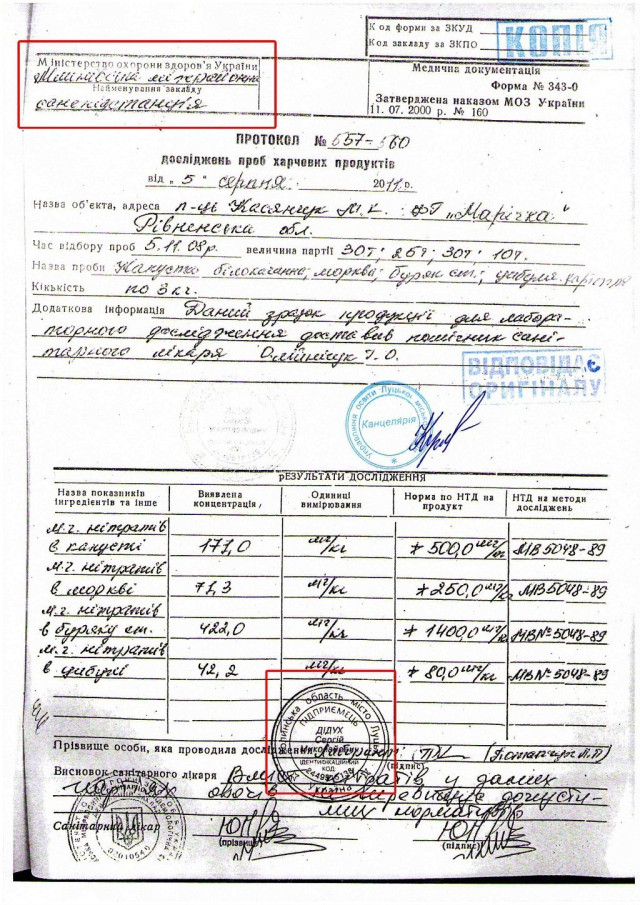 Код форми за ЗКУД
Код закладу за ЗКПО
КОПІЯ
Міністерство охорони здоров'я України
Млинівська міжрайонна
Найменування закладу
санепідстанція
Медична документація
Форма № 343-0
Затверджена наказом МОЗ України
11. 07. 2000 р. № 160
ПРОТОКОЛ № 557-560
досліджень проб харчових продуктів
від „5" серпня 2011р.
Назва об'єкта, адреса п-ць Касянчук М.К. ФГ „Марічка"
Рівненська обл.
Час відбору проб 5.11.08р. величина партії 30т; 25т; 30т; 10т.
Назва проби Капуста білокачанна; морква; буряк ст.; цибуля
Кількість по 3 кг.
Додаткова інформація Даний зразок продукції для лабора-
торного дослідження доставив помісник сані-
тарного лікаря Олійнічук І.О.
ВІДПОВІДАЄ
ОРИГІНАЛУ
Управління освіти Луцької міської
Канцелярія
РЕЗУЛЬТАТИ ДОСЛІДЖЕННЯ
Назва показників інгредієнтів та інше Виявлена концентрація, Одиниці вимірювання Норма по НТД на продукт НТД на методи досліджень
м.ч. нітратів
в капусті 171,0 мг/кг * 500,0 мг/кг МВ 5048-89
м.ч. нітратів
в моркві 71,3 мг/кг * 250,0 мг/кг МВ 5048-89
м.ч. нітратів
в буряку ст. 422,0 мг/кг * 1400,0 мг/кг МВ № 5048-89
м.ч. нітратів
в цибулі 42,2 мг/кг * 80,0 мг/кг МВ № 5048-89
Волинська область місто Луцьк
ПІДПРИЄМЕЦЬ
ДІДУХ
Сергій
Миколайович
ІДЕНТИФІКАЦІЙНИЙ
КОД
Україна
Прізвище особи, яка проводила дослідження
Висновок санітарного лікаря Вміст нітратів у даних
овочів не перевищує допусти-
мих нормативів
Санітарний лікар
(прізвище) (підпис)
02010540